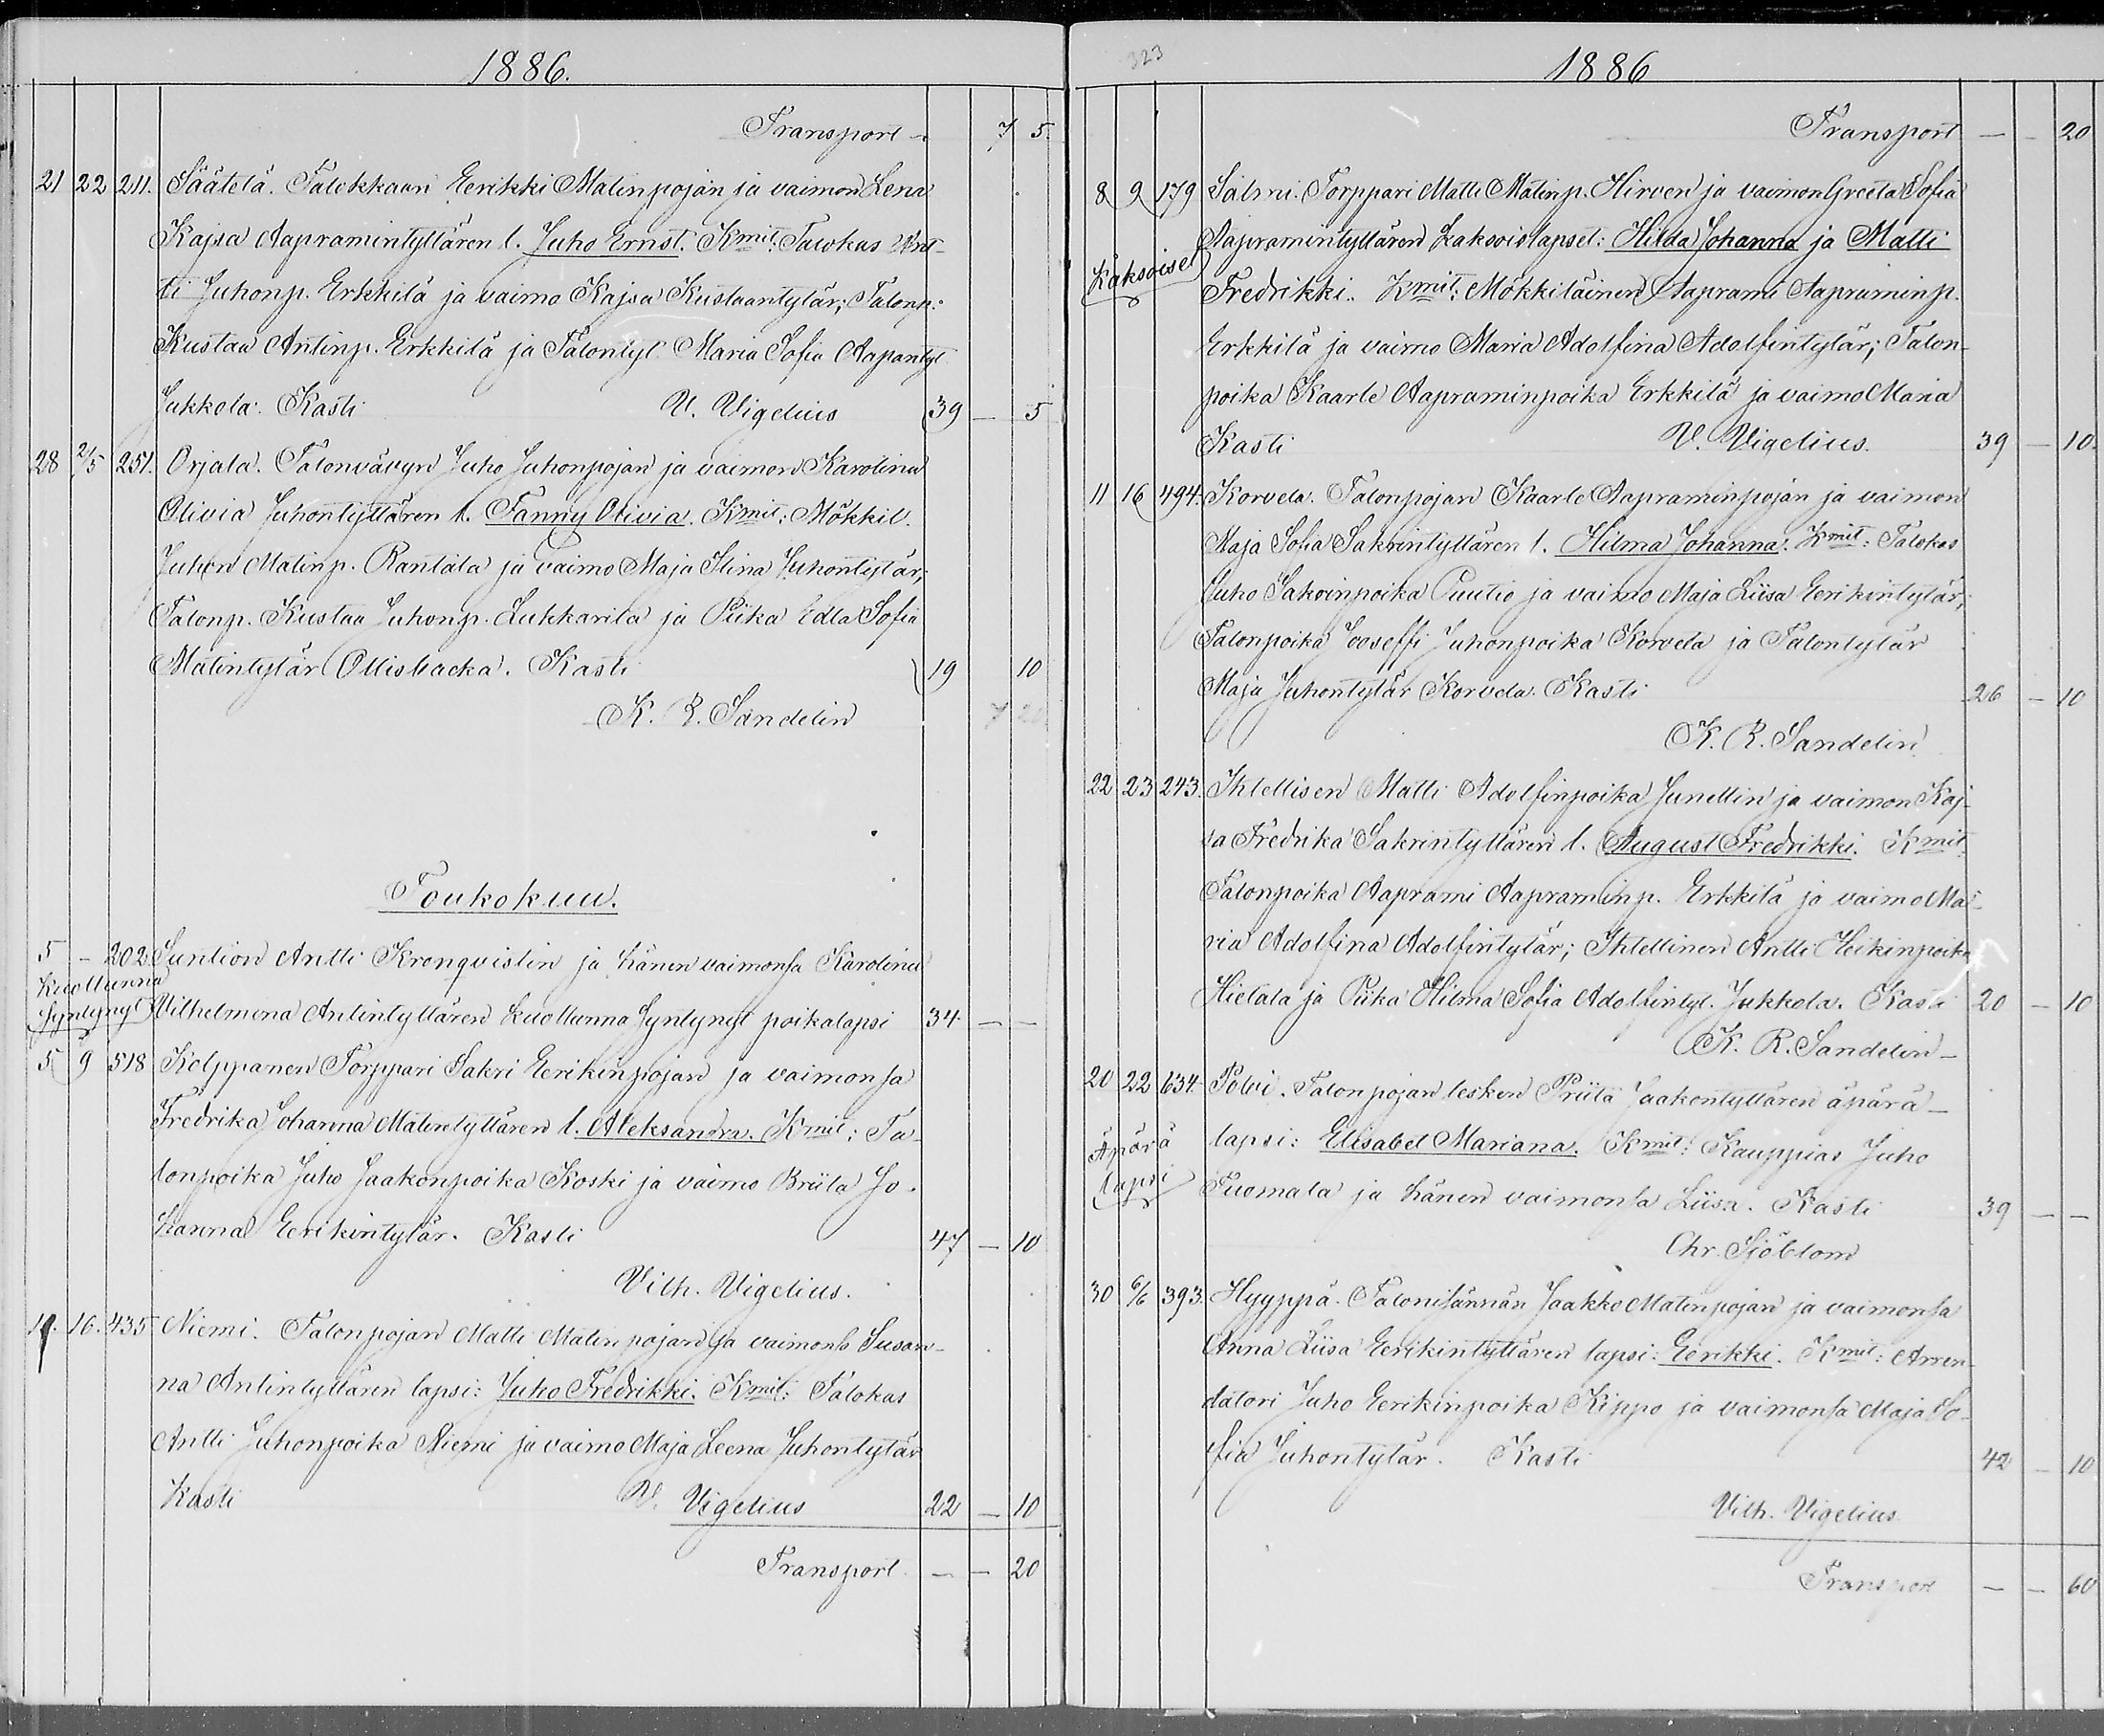 1886.
Transport - 7 5.
21 22 211. Säätelä. Talokkaan Eerikki Matinpojan ja vaimon Lena
Kajsa Aapramintyttären l. Juho Ernst. Kmit: Talokas Ant-
ti Juhonp. Erkkilä ja vaimo Kajsa Kustaantytär; Talonp:
Kustaa Antinp. Erkkilä ja Talontyt. Maria Sofia Aapantyt
Jukkola. Kasti V. Vigelius 39 — 5
28 2/5 251. Orjala. Talonvävyn Juho Juhonpojan ja vaimon Karolina
Olivia Juhontyttären l. Fanny Olivia. Kmit: Mökkil.
Juhon Matinp. Rantala ja vaimo Maja Stina Juhontytär;
Talonp. Kustaa Juhonp. Lukkarila ja Piika Edla Sofia
Matintytär Ollisbacka. Kasti 19 10
K. R. Sandelin 7 20
Toukokuu.
5 - 202. Suntion Antti Kronqvistin ja hänen vaimonsa Karolina
Kuolluna
syntynyt Vilhelmina Antintyttären kuolluna syntynyt poikalapsi 34 — —
5 9 518 Kolppanen Torppari Sakri Eerikinpojan ja vaimonsa
Fredrika Johanna Matintyttären l. Aleksandra. Kmit: Ta-
lonpoika Juho Jaakonpoika Koski ja vaimo Briita Jo-
hanna Eerikintytär. Kasti 47 — 10
Vilh. Vigelius.
16. 435 Niemi. Talonpojan Matti Matinpojan ja vaimonsa Susan-
na Antintyttären lapsi: Juho Fredrikki. Kmit: Talokas
Antti Juhonpoika Niemi ja vaimo Maja Leena Juhontytär
Kasti V. Vigelius 22 — 10
Transport — — 20
323
1886
Transport — — 20
8 9 179 Salmi. Torppari Matti Matinp. Hirven ja vaimon Greeta Sofia
Aapramintyttären kaksoislapset: Hilda Johanna ja Matti
Kaksoiset
Fredrikki. Kmit: Mökkiläinen Aaprami Aapraminp.
Erkkilä ja vaimo Maria Adolfina Adolfintytär; Talon-
poika Kaarle Aapraminpoika Erkkilä ja vaimo Maria
Kasti V. Vigelius. 39 — 10.
11 16 494. Korvela. Talonpojan Kaarle Aapraminpojan ja vaimon
Maja Sofia Sakrintyttären l. Hilma Johanna. Kmit: Talokas
Juho Sakrinpoika Puutio ja vaimo Maja Liisa Eerikintytär;
Talonpoika Jooseffi Juhonpoika Korvela ja Talontytär
Maja Juhontytär Korvela. Kasti 26 — 10
K. R. Sandelin
22 23 243. Ihtellisen Matti Adolfinpoika Junellin ja vaimon Kaj-
sa Fredrika Sakrintyttären l. August Fredrikki. Kmit:
Talonpoika Aaprami Aapraminp. Erkkilä ja vaimo Ma-
ria Adolfina Adolfintytär; Ihtellinen Antti Heikinpoika
Hietala ja Piika Hilma Sofia Adolfintyt. Jukkola. Kasti 20 — 10
K. R. Sandelin —
20 22 634. Polvi. Talonpojan lesken Priita Jaakontyttären äpärä-
Äpärä
lapsi
lapsi: Elisabet Mariana. Kmit: Kauppias Juho
Tuomala ja hänen vaimonsa Liisa. Kasti 39 — —
Chr. Sjöblom
30 6/6 393. Hyyppä. Talonisännän Jaakko Matinpojan ja vaimonsa
Anna Liisa Eerikintyttären lapsi: Eerikki. Kmit: Arren-
datori Juho Eerikinpoika Kippo ja vaimonsa Maja So-
fia Juhontytär. Kasti 42 — 10
Vilh. Vigelius
Transport — — 60